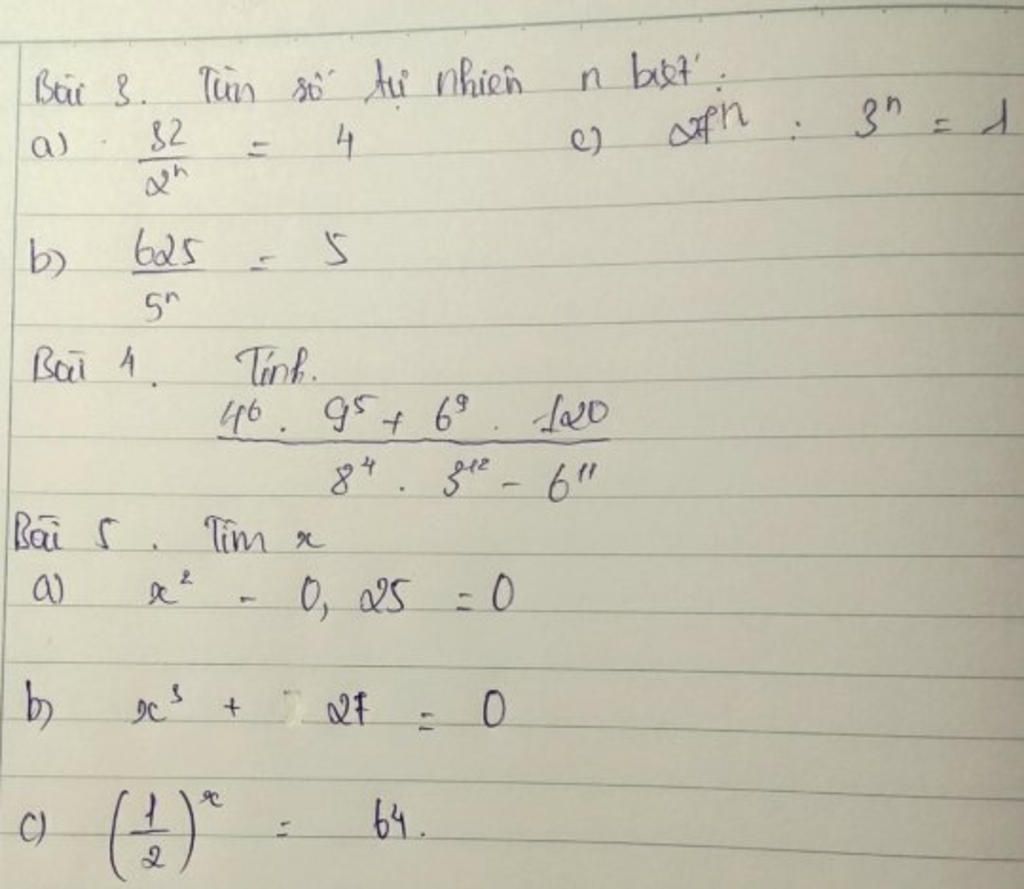 Bài 3. Tìm số tự nhiên n biết:
a) 32/2ⁿ = 4 c) 27ⁿ : 3ⁿ = 1
b) 625/5ⁿ = 5
Bài 4. Tính.
(4⁶ . 9⁵ + 6⁹ . 120)/(8⁴ . 3¹² - 6¹¹)
Bài 5. Tìm x
a) x² - 0,25 = 0
b) x³ + 27 = 0
c) (1/2)ˣ = 64.